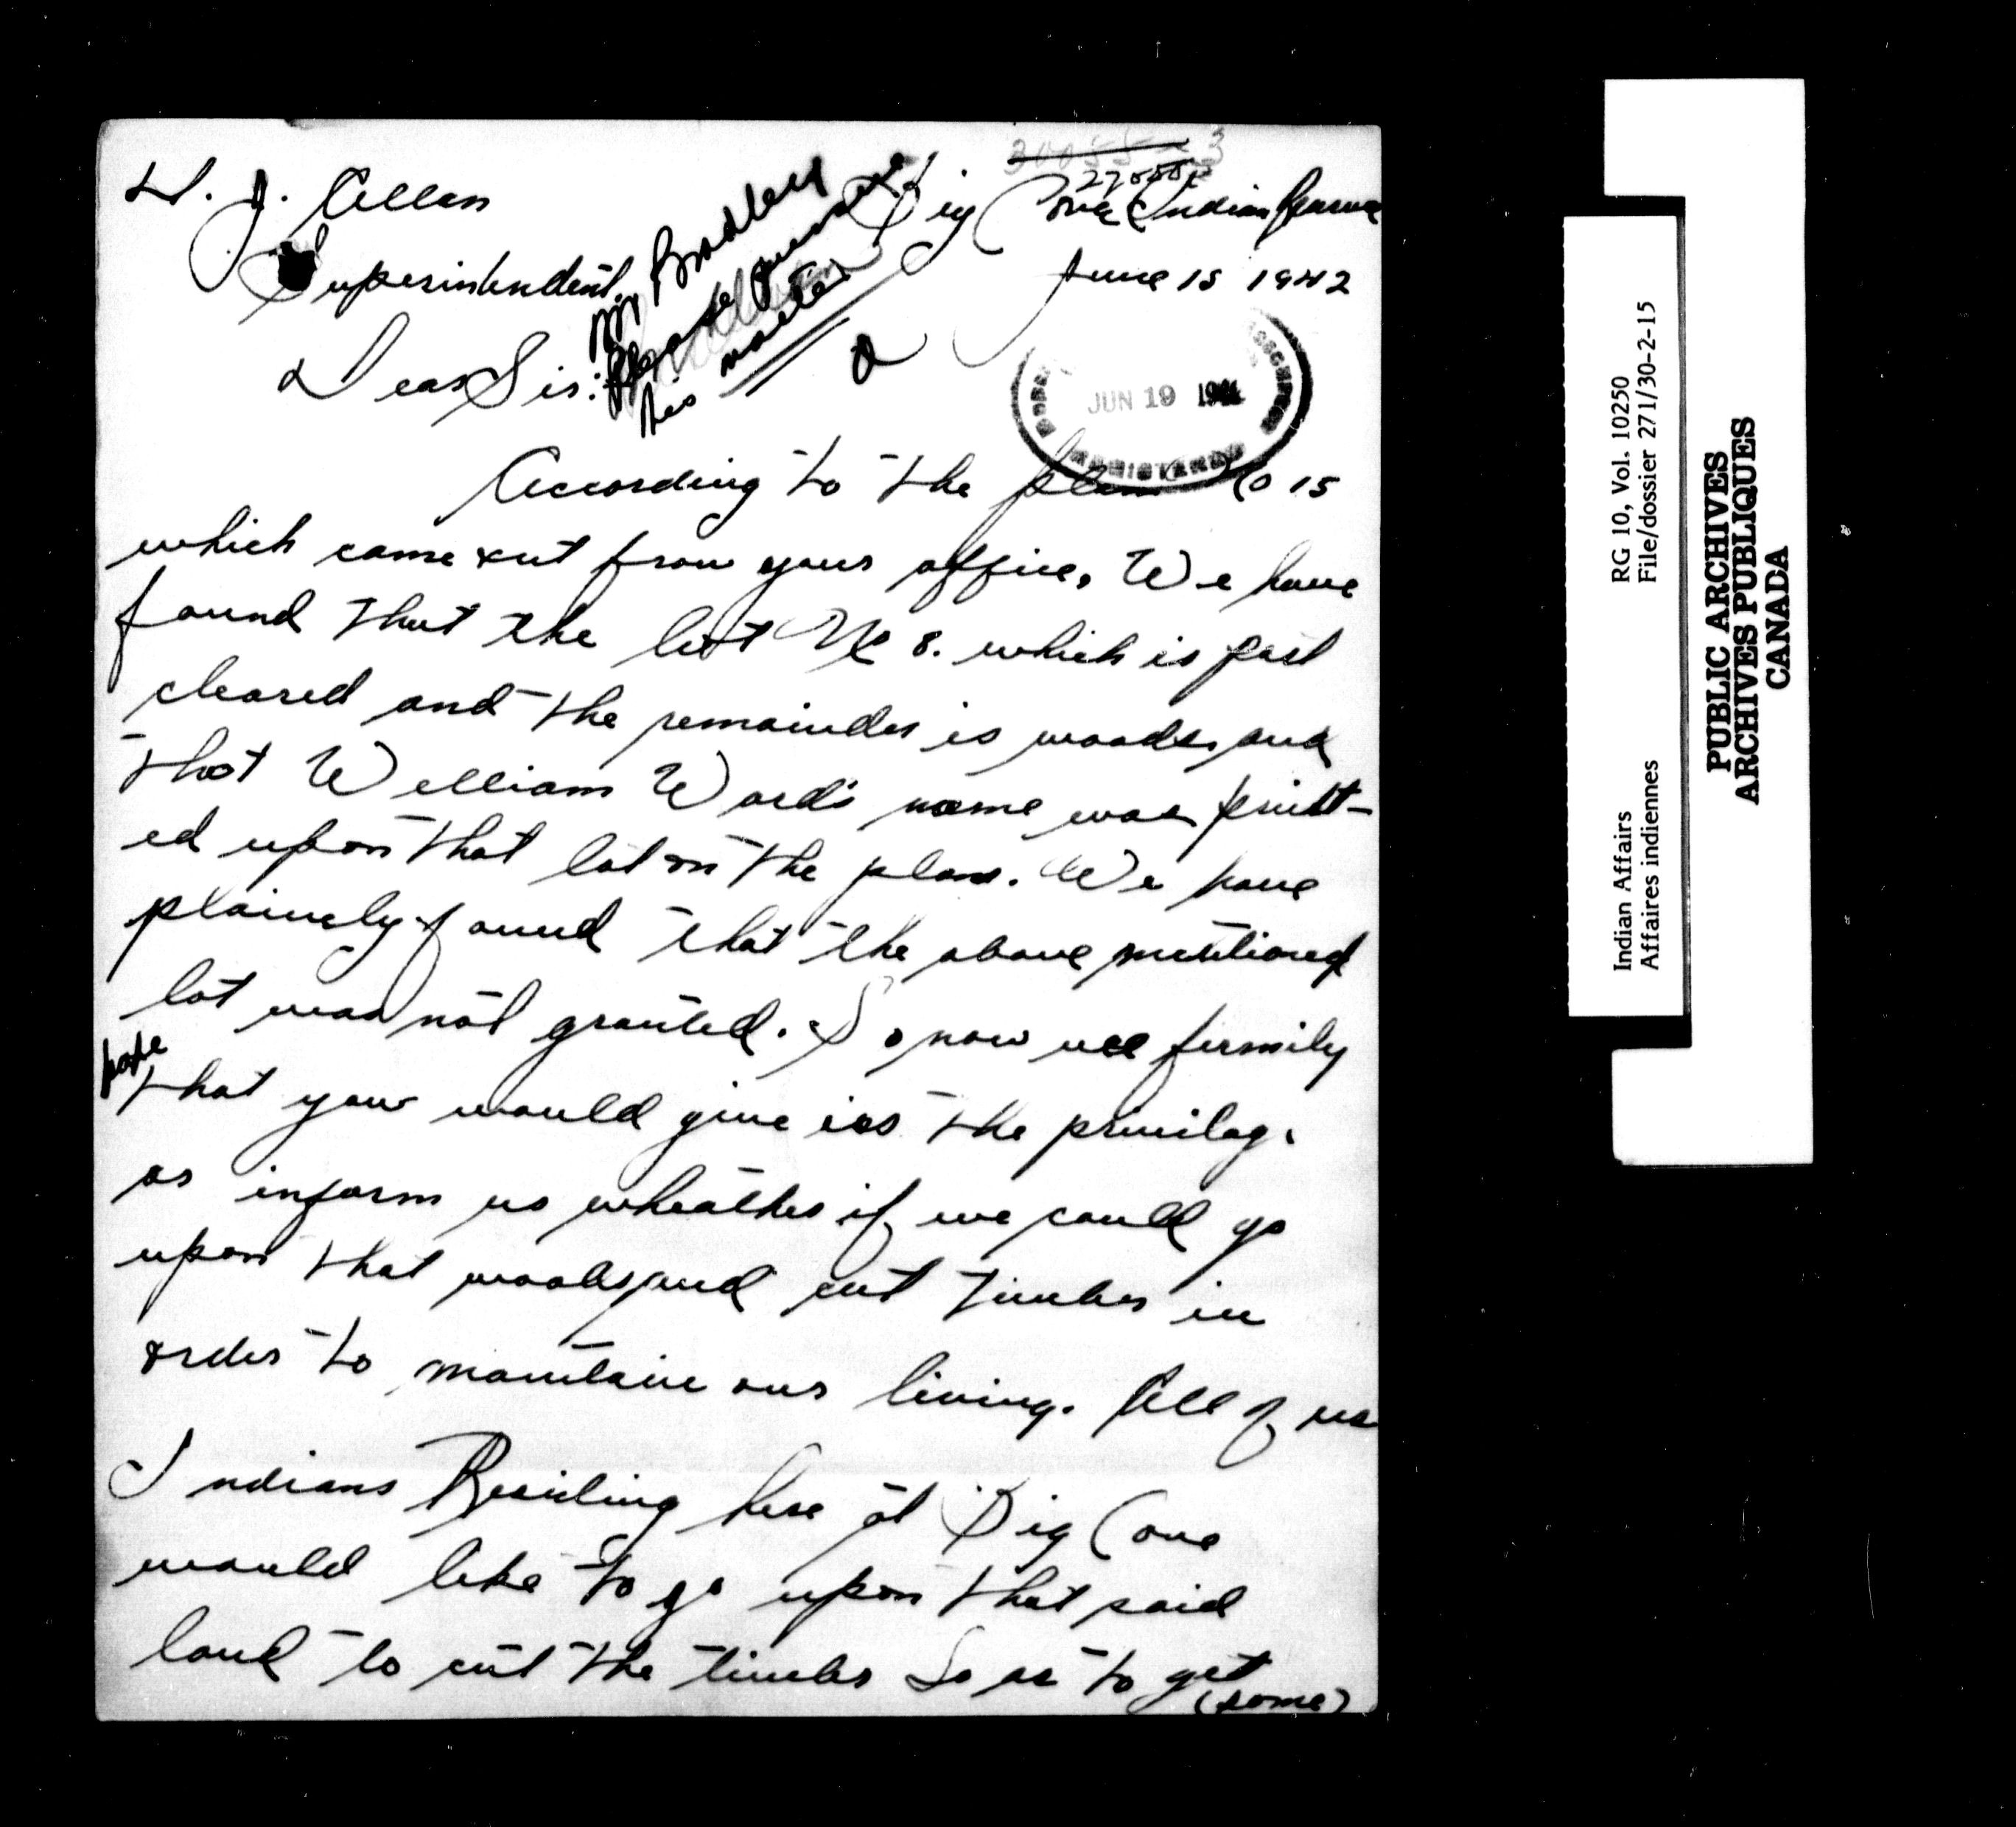 D. J. Allan
Superintendent.
Big Cove Indian Reserve
June 15 1942
Mr Bradley
Please
this matter
JUN 19
Dear Sir:
According to the plan No 15
which came out from your office, We have
found that the lot No 8. which is part
cleared and the remainder is woods, and
that William Ward's name was print-
ed upon that lot on the plan. We have
plainely found that the above mentioned
lot was not granted. So now wee firmily
hope
that you would give us the privilage
or inform us wheather if we could go
upon that woods and cut timber in
order to maintain our living. All of us
Indians Residing here at Big Cove
would like to go upon that said
land to cut the timber So as to get
(some)
Indian Affairs RG 10, Vol. 10250
Affaires indiennes File/dossier 271/30-2-15
PUBLIC ARCHIVES
ARCHIVES PUBLIQUES
CANADA